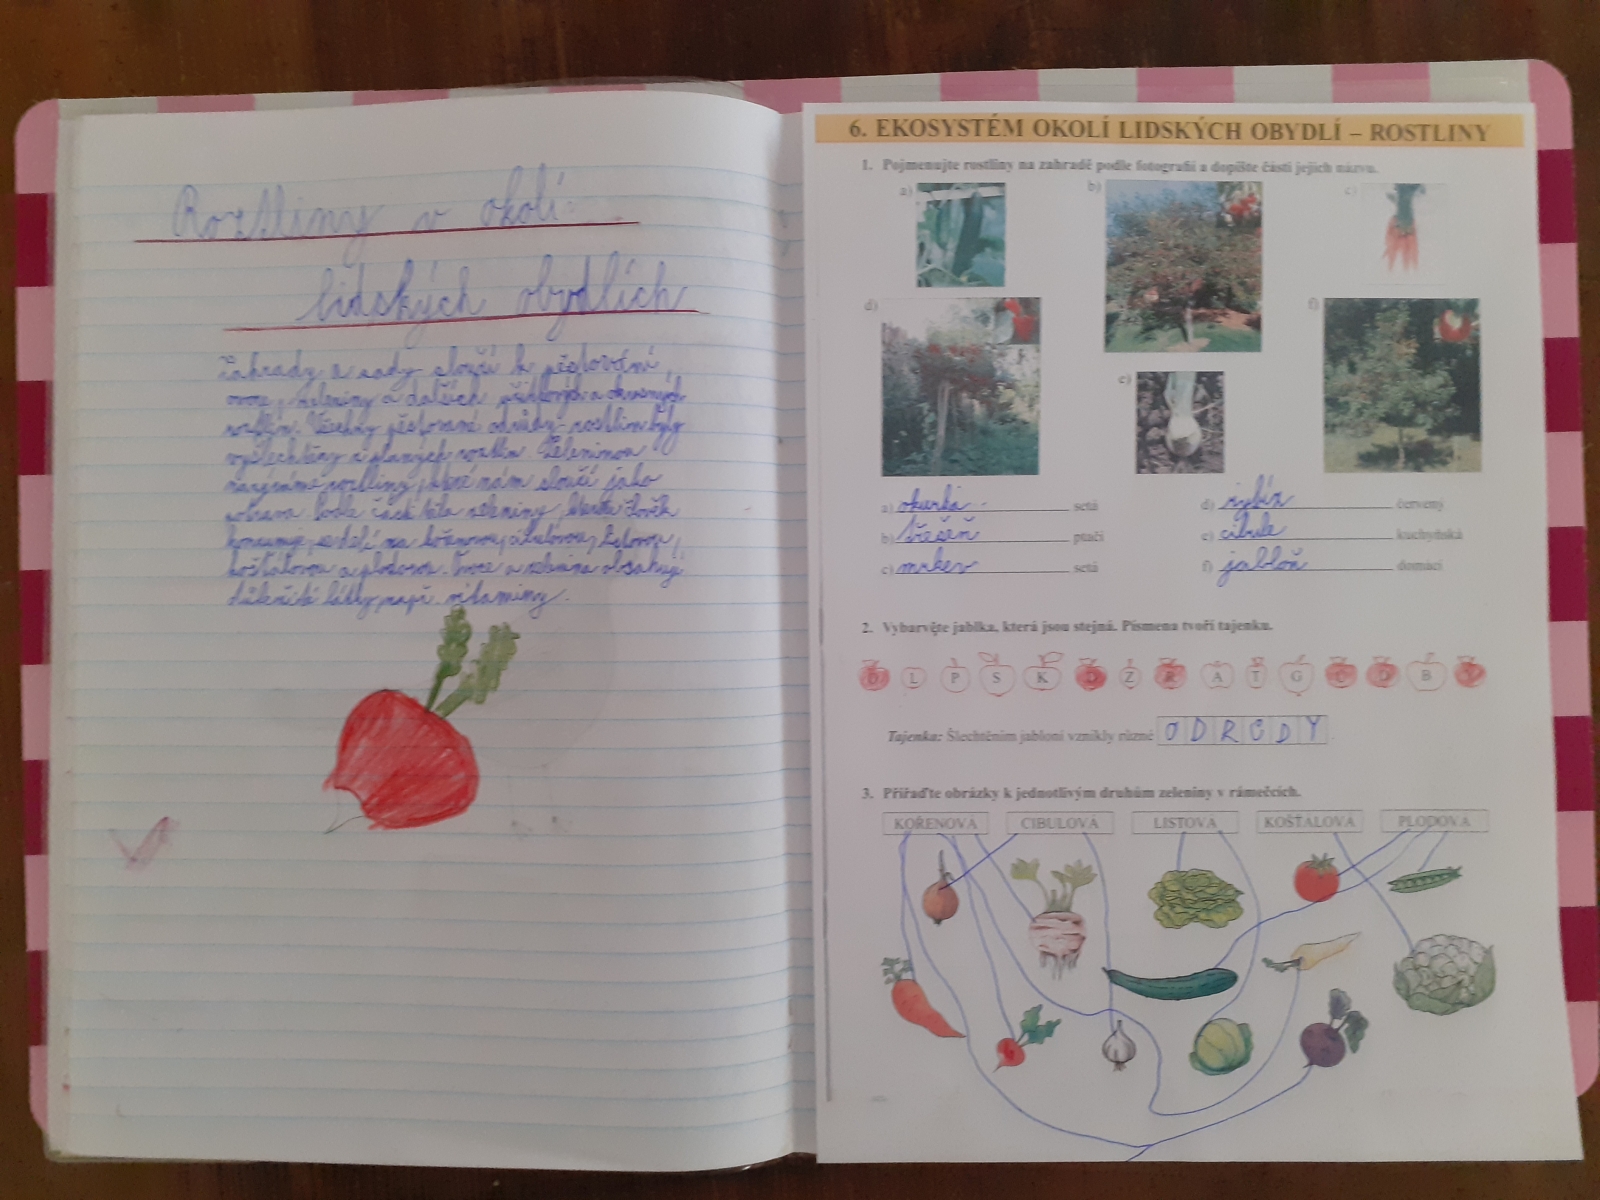 Rostliny v okolí
lidských obydlích
Zahrady a sady slouží k pěstování
ovoce, zeleniny a dalších užitkových a okrasných
rostlin. Všechny pěstované odrůdy rostlin byly
vyšlechtěny z planých rostlin. Zeleninou
nazýváme rostliny, které nám slouží jako
potrava. Podle části těla zeleniny, kterou člověk
konzumuje, se dělí na kořenovou, cibulovou, listovou,
košťálovou a plodovou. Ovoce a zelenina obsahují
důležité látky, např. vitaminy.
6. EKOSYSTÉM OKOLÍ LIDSKÝCH OBYDLÍ – ROSTLINY
1. Pojmenujte rostliny na zahradě podle fotografií a dopište části jejich názvu.
a) b) c)
d) e) f)
a) okurka setá d) rybíz červený
b) třešeň ptačí e) cibule kuchyňská
c) mrkev setá f) jabloň domácí
2. Vybarvěte jablka, která jsou stejná. Písmena tvoří tajenku.
O L P S K D Z R A T G Ů D B Y
Tajenka: Šlechtěním jabloní vznikly různé O D R Ů D Y
3. Přiřaďte obrázky k jednotlivým druhům zeleniny v rámečcích.
KOŘENOVÁ CIBULOVÁ LISTOVÁ KOŠŤÁLOVÁ PLODOVÁ